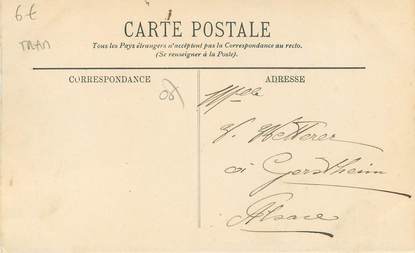 6€
TRAM
CARTE POSTALE
Tous les Pays étrangers n'acceptent pas la Correspondance au recto.
(Se renseigner à la Poste).
CORRESPONDANCE
ADRESSE
Mlle
V. Ketterer
à Gerstheim
Alsace